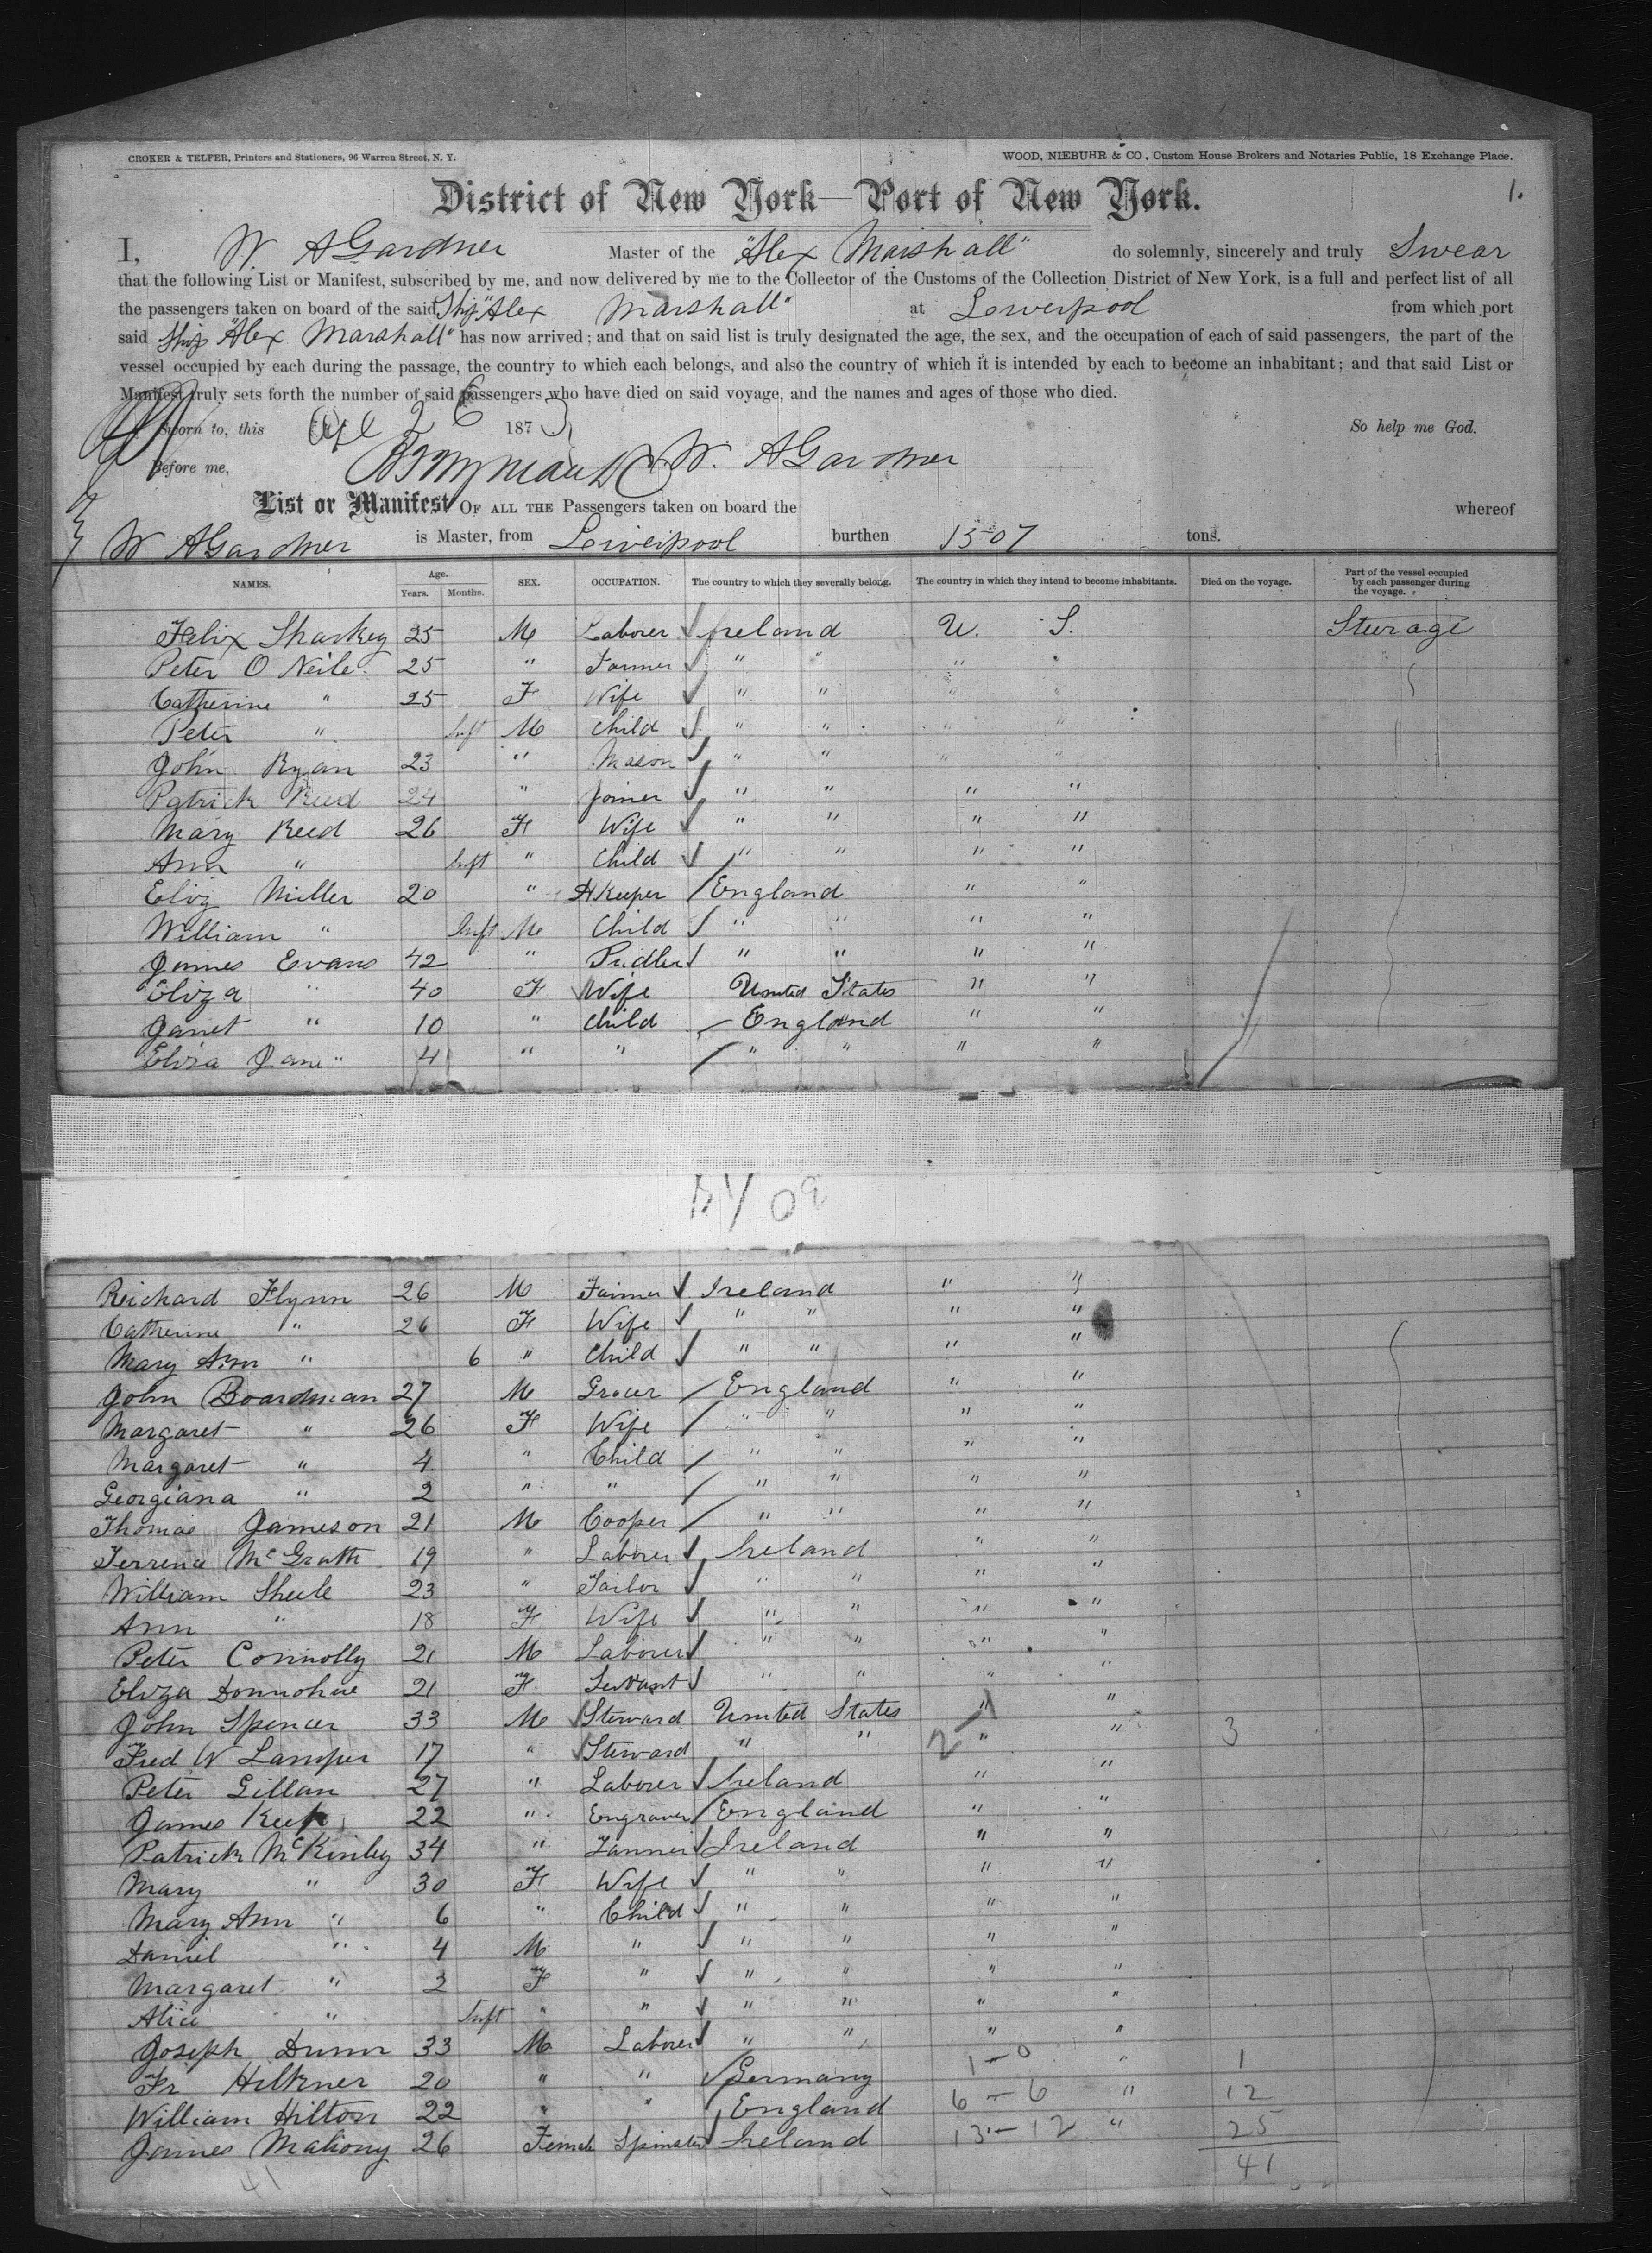 CROKER & TELFER, Printers and Stationers, 96 Warren Street, N. Y. WOOD, NIEBUHR & CO, Custom House Brokers and Notaries Public, 18 Exchange Place.
District of New York—Port of New York. 1.
I, W AGardner Master of the "Alex Marshall" do solemnly, sincerely and truly Swear
that the following List or Manifest, subscribed by me, and now delivered by me to the Collector of the Customs of the Collection District of New York, is a full and perfect list of all
the passengers taken on board of the said Ship "Alex Marshall" at Liverpool from which port
said Ship "Alex Marshall" has now arrived; and that on said list is truly designated the age, the sex, and the occupation of each of said passengers, the part of the
vessel occupied by each during the passage, the country to which each belongs, and also the country of which it is intended by each to become an inhabitant; and that said List or
Manifest truly sets forth the number of said passengers who have died on said voyage, and the names and ages of those who died.
Sworn to, this 26 1873 So help me God.
Before me, W. AGardner
List or Manifest OF ALL THE Passengers taken on board the whereof
W AGardner is Master, from Liverpool burthen 1507 tons.
NAMES. Age. Years. Months. SEX. OCCUPATION. The country to which they severally belong. The country in which they intend to become inhabitants. Died on the voyage. Part of the vessel occupied by each passenger during the voyage.
Felix Sharkey 25 M Laborer Ireland U. S. Steerage
Peter O Neile 25 " Farmer " " " "
Catherine " 25 F Wife " " " "
Peter " Inft M Child " " " "
John Ryan 23 " Mason " " "
Patrick Reed 24 " Joiner " " " "
Mary Reed 26 F Wife " " " "
Ann " Inft " Child " " " "
Eliz Miller 20 " HKeeper England " "
William " Inft M Child " " " "
James Evans 42 " Pudler " " " "
Eliza " 40 F Wife United States " "
Janet " 10 " Child England " "
Eliza Jane " 4 " " " " " "
Reichard Flynn 26 M Farmer Ireland " "
Catherine " 26 F Wife " " " "
Mary Ann " 6 " Child " " " "
John Boardman 27 M Grocer England " "
Margaret " 26 F Wife " " " "
Margaret " 4 " Child " " " "
Georgiana " 2 " " " " " "
Thomas Jameson 21 M Cooper " " " "
Terrence McGrath 19 " Laborer Ireland " "
William Sheele 23 " Tailor " " " "
Ann " 18 F Wife " " " "
Peter Connolly 21 M Laborer " " " "
Eliza Donnohue 21 F Servant " " " "
John Spencer 33 M Steward United States " "
Fred W Lamper 17 " Steward " " 2 " " 3
Peter Gillan 27 " Laborer Ireland " "
James 22 " Engraver England " "
Patrick McKinley 34 " Tanner Ireland " "
Mary " 30 F Wife " " " "
Mary Ann " 6 " Child " " " "
Daniel " 4 M " " " " "
Margaret " 2 F " " " " "
Alice " Inft " " " " " "
Joseph Dunn 33 M Laborer " " " "
Fr Hilkner 20 " " Germany 1-0 " 1
William Hilton 22 " " England 6-6 " 12
James Mahony 26 Female Spinster Ireland 13-12 " 25
41 41